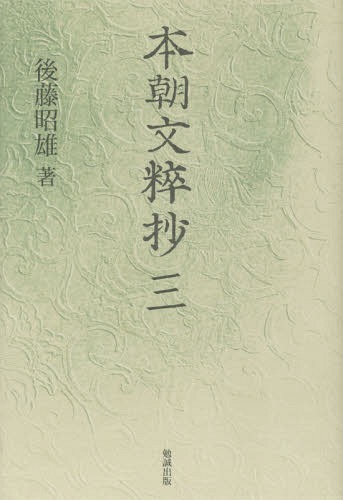 本朝文粋抄 三
後藤昭雄 著
勉誠出版